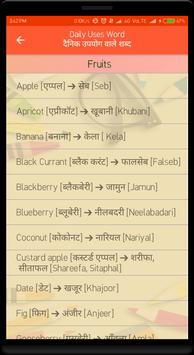 5:42 PM
Daily Uses Word
दैनिक उपयोग वाले शब्द
Fruits
Apple [एप्पल] → सेब [Seb]
Apricot [एप्रीकॉट] → खूबानी [Khubani]
Banana [बनाना] → केला [ Kela]
Black Currant [ब्लैक करंट] → फालसेब [Falseb]
Blackberry [ब्लैकबेरी] → जामुन [Jamun]
Blueberry [ब्लूबेरी] → नीलबदरी [Neelabadari]
Coconut [कोकोनट] → नारियल [Nariyal]
Custard apple [कस्टर्ड एप्पल] → शरीफा,
सीताफल [Shareefa, Sitaphal]
Date [डेट] → खजूर [Khajoor]
Fig [फिग] → अंजीर [Anjeer]
Gooseberry [गूसबेरी] → आँवला [Amla]